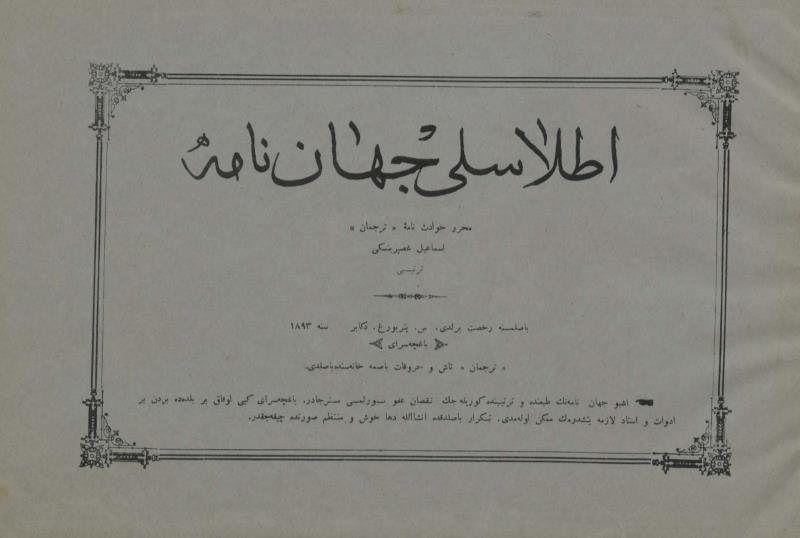 اطلاسلی جهان نامهٔ
محرر حوادث نامهٔ « ترجمان »
اسماعیل غصپرینسکی
ترتیبی
باصلمسنه رخصت برلدی. س. پتربورغ. دکابر سنه ۱۸۹۳
باغچه‌سرای
« ترجمان » تاش و حروفات باصمه خانه‌سنده‌باصلدی.
اشبو جهان نامه‌نك طبعنده و ترتیبنده کوریله‌جك نقصان عفو سیورلمسی مسترجادر. باغچه‌سرای کبی اوفاق بر بلده‌ده بردن بر
ادوات و استاد لازمه یتشدرمك ممکن اوله‌مدی. تکرار باصلدقده انشاالله دها خوش و منتظم صورتده چیقه‌جقدر.